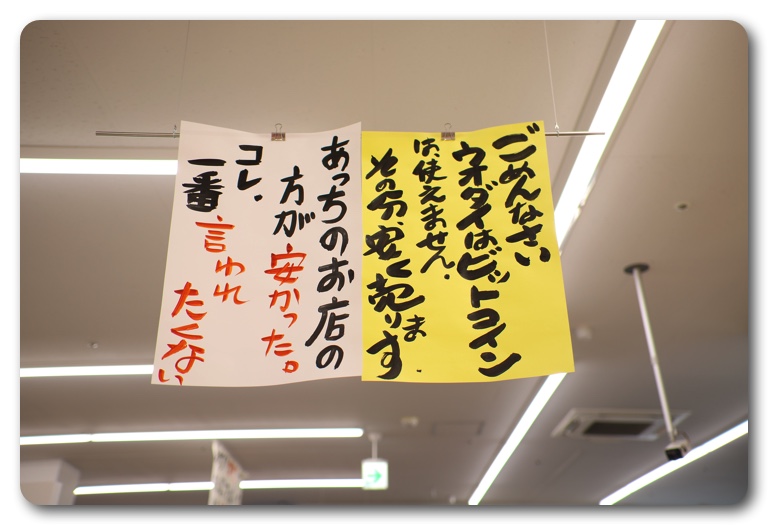 ごめんなさい
ウオダイはビットコイン
は、使えません。
その分、安く売ります
あっちのお店の
方が安かった。
コレ、
一番
言われ
たくない